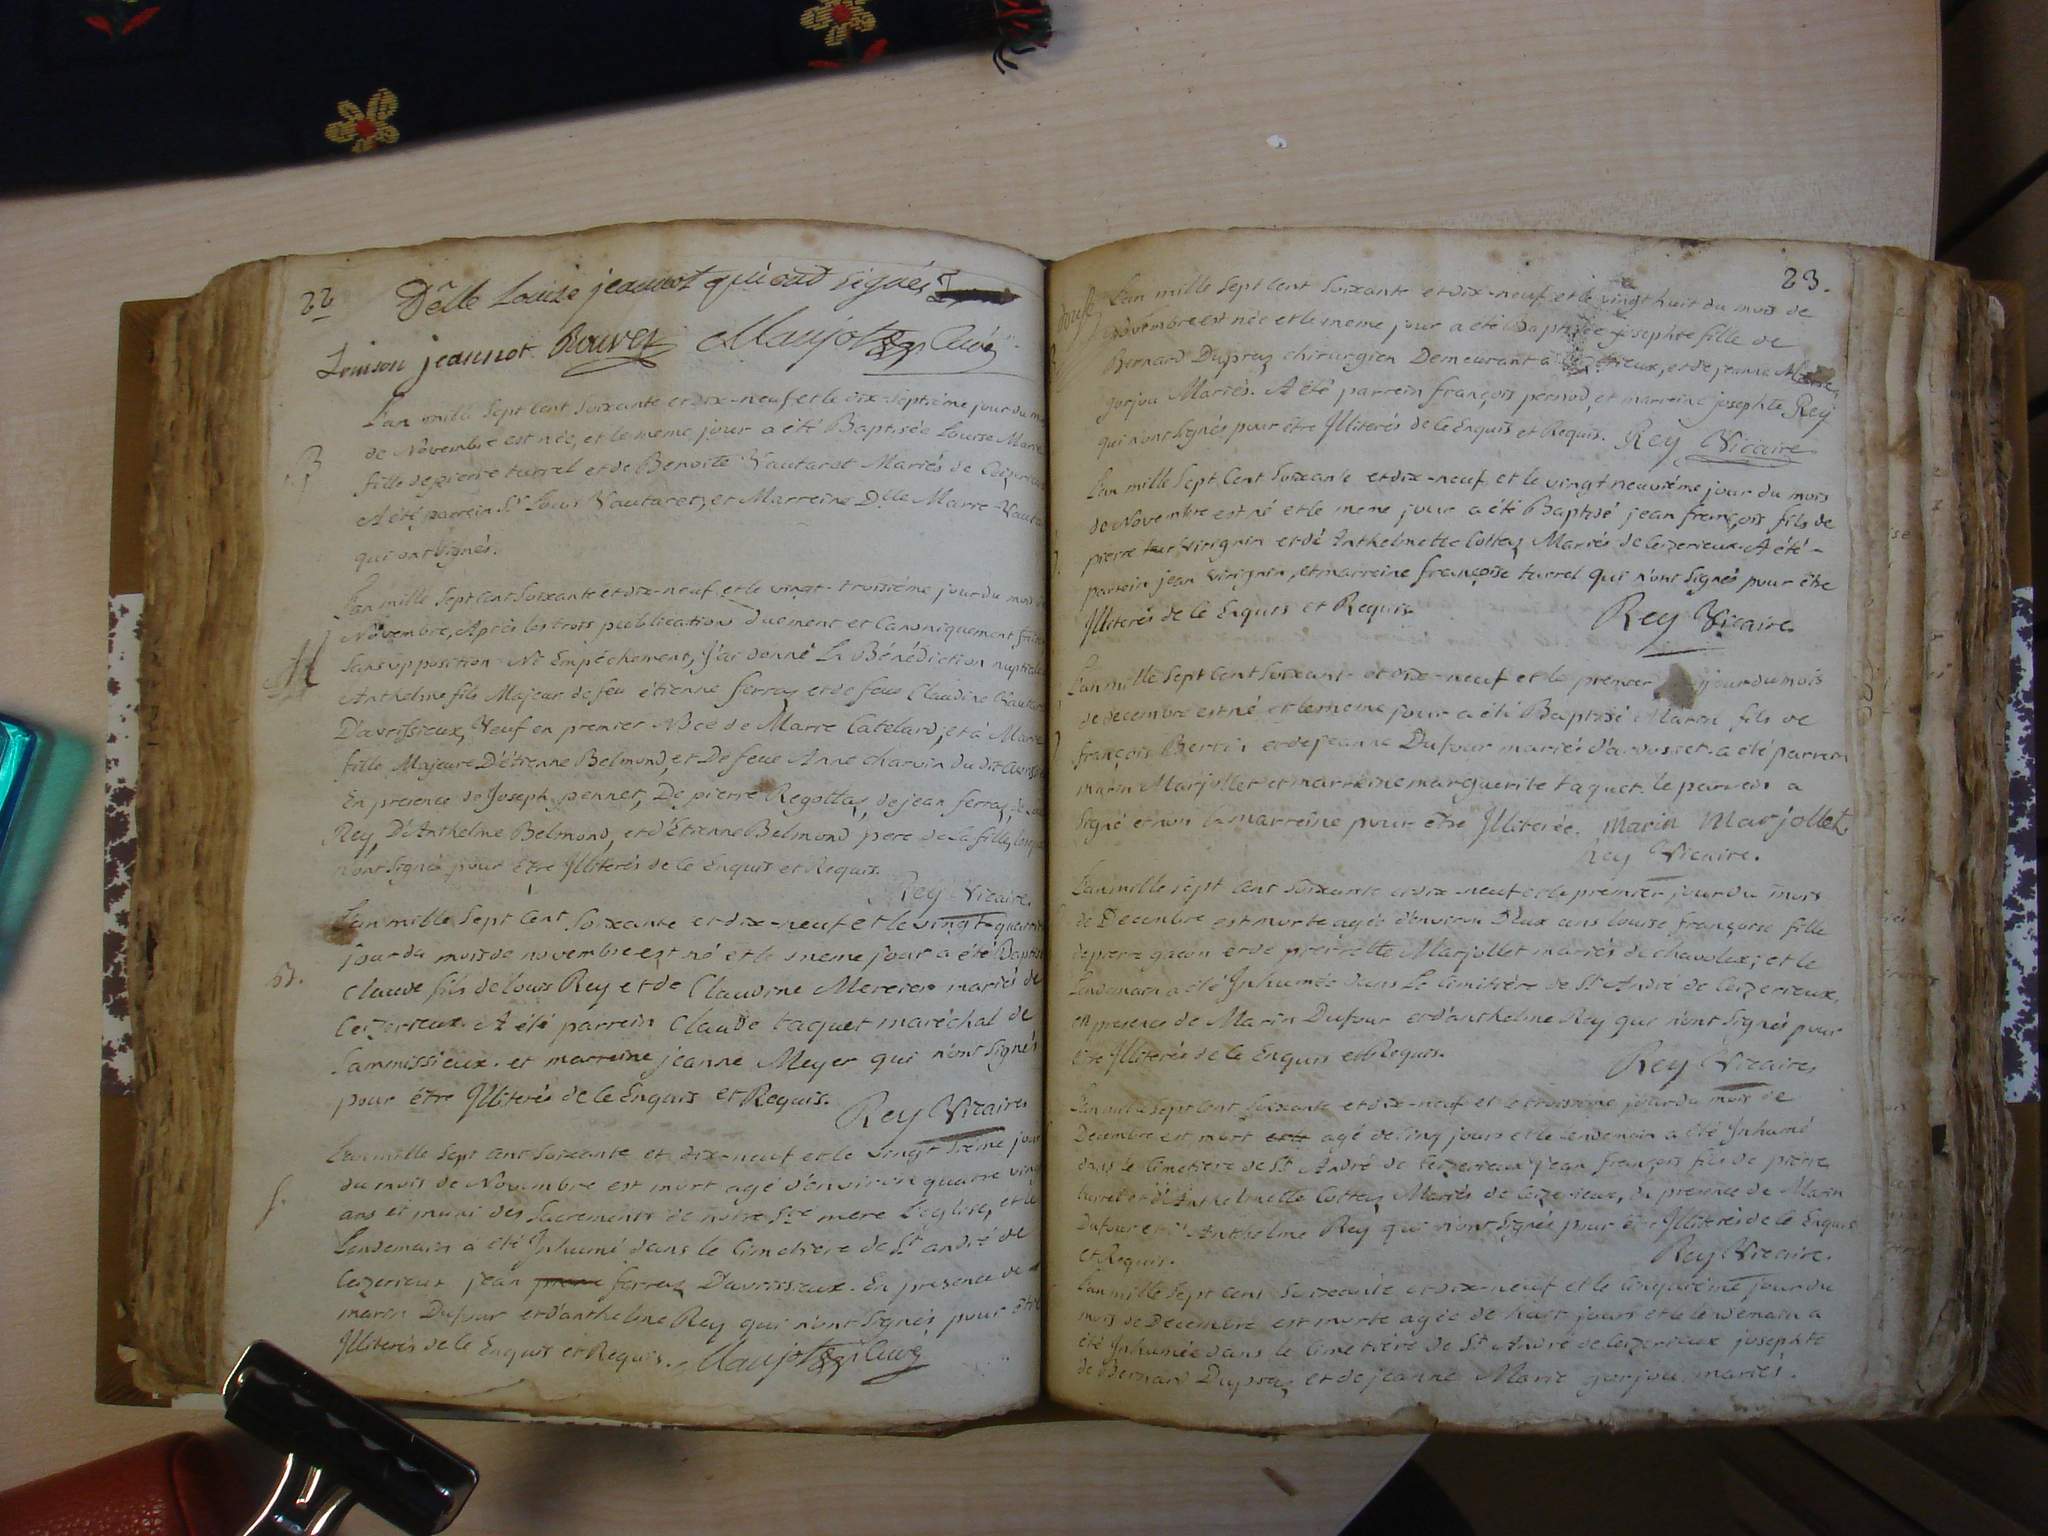 22
Delle Louise jeannot qui ont signés
Louison jeannot Rouvez Curé
B
L'an mille Sept Cent Soixante et dix-neuf et le dix-septième jour du
de Novembre est née, et le meme jour a été Baptisée Louise Marie
fille de pierre turrel et de Benoite Vautaret Mariés de
A été parrein Sr Louis Vautaret, et Marreine Dlle Marie
qui ont Signés.
M
L'an mille Sept Cent Soixante et dix-neuf et le vingt-troisième jour du mois
Novembre, Après les trois publications duement et Canoniquement
Sans opposition Ni Empéchement, j'ai donné La Bénédiction
Anthelme fils Majeur de feu étienne ferraz et de feue Claudine
D'avrissieux, Veuf en premier Noce de Marie Catelard, et à Marie
fille Majeure D'étienne Belmond, et De feue Anne charvin du dit
En presence de Joseph pennet, De pierre Regottaz, de jean ferraz,
Rey, D'Anthelme Belmond, et d'Etienne Belmond pere de la fille,
n'ont Signés pour être Illiterés de Ce Enquis et Requis.
Rey Vicaire.
B.
L'an mille Sept Cent Soixante et dix-neuf et le vingt-
jour du mois de novembre est né et le meme jour a été
Claude fils de Louis Rey et de Claudine Mercier mariés de
Ceizerieux. A été parrein Claude taquet maréchal de
Sammissieux. et marreine jeanne Meyer qui n'ont Signés
pour être Illiterés de Ce Enquis et Requis. Rey Vicaire
L'an mille Sept Cent Soixante et dix-neuf et le vingt jour
f.
du mois de Novembre est mort agé d'environ quatre
ans et muni des Sacrements de notre Ste mere L'église, et le
Lendemain a été Inhumé dans le Cimetière de St andré de
Ceizerieux jean ferraz D'avrissieux. En presence de
marin Dufour et d'anthelme Rey qui n'ont Signés pour être
Illiterés de Ce Enquis et Requis. Curé
23.
L'an mille Sept Cent Soixante et dix-neuf et le vingt huit du mois de
Novembre est née et le meme jour a été Baptisée josephte fille de
Bernard Dupraz chirurgien Demeurant à et de jeanne Marie
gorjou Mariés. A été parrein françois pernod, et marreine josephte Rey
qui n'ont Signés pour être Illiterés de Ce Enquis et Requis. Rey Vicaire
L'an mille Sept Cent Soixante et dix-neuf et le vingt neuvième jour du mois
de Novembre est né et le meme jour a été Baptisé jean françois fils de
pierre Virignin et de Anthelmette Cottaz Mariés de Ceizerieux. A été
parrein jean Virignin, et marreine françoise turrel qui n'ont Signés pour être
Illiterés de Ce Enquis et Requis Rey Vicaire.
L'an mille Sept Cent Soixante et dix-neuf et le premier jour du mois
de decembre est né et le meme jour a été Baptisé Marin fils de
françois Bertin et de jeanne Dufour mariés d'ardosset. a été parrein
marin Marjollet et marreine marguerite taquet. le parrein a
Signé et non la marreine pour être Illiterée. Marin Marjollet
Rey Vicaire.
L'an mille Sept Cent Soixante et dix-neuf et le premier jour du mois
de Decembre est morte agée d'environ Deux ans louise françoise fille
de pierre gacon et de pierrette Marjollet mariés de chavolex; et le
Lendemain a été Inhumée dans Le Cimitière de St André de Ceizerieux,
en presence de Marin Dufour et d'anthelme Rey qui n'ont Signés pour
être Illiterés de Ce Enquis et Requis. Rey Vicaire,
L'an mille Sept Cent Soixante et dix-neuf et le troisième jour du mois de
Decembre est mort agé de Cinq jours et le lendemain a été Inhumé
dans le Cimetiere de St André de Ceizerieux jean françois fils de pierre
turrel et d'Anthelmette Cottaz Mariés de Ceizerieux, En presence de Marin
Dufour et d'Anthelme Rey qui n'ont Signés pour être Illiterés de Ce Enquis
et Requis. Rey Vicaire.
L'an mille Sept Cent Soixante et dix-neuf et le Cinquième jour du
mois de Decembre est morte agée de huit jours et le lendemain a
été Inhumée dans le Cimetière de St André de Ceizerieux josephte
de Bernard Dupraz et de jeanne Marie gorjou mariés.